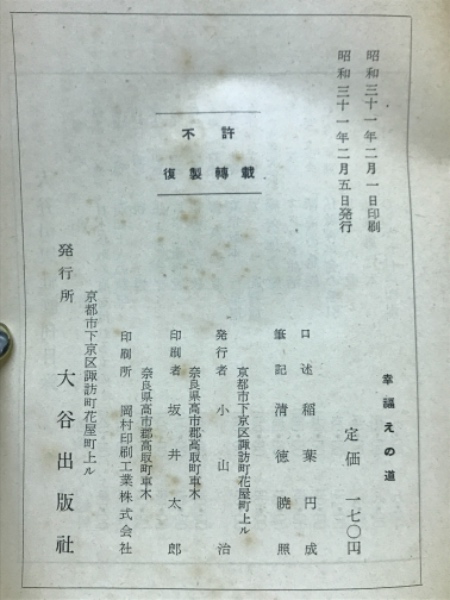 昭和三十一年二月一日印刷
昭和三十一年二月五日発行
不許
復製轉載
幸福えの道
定価 一七〇円
口述 稲葉円成
筆記 清徳暁照
京都市下京区諏訪町花屋町上ル
発行者 小山治
奈良県高市郡高取町車木
印刷者 坂井太郎
奈良県高市郡高取町車木
印刷所 岡村印刷工業株式会社
京都市下京区諏訪町花屋町上ル
発行所 大谷出版社